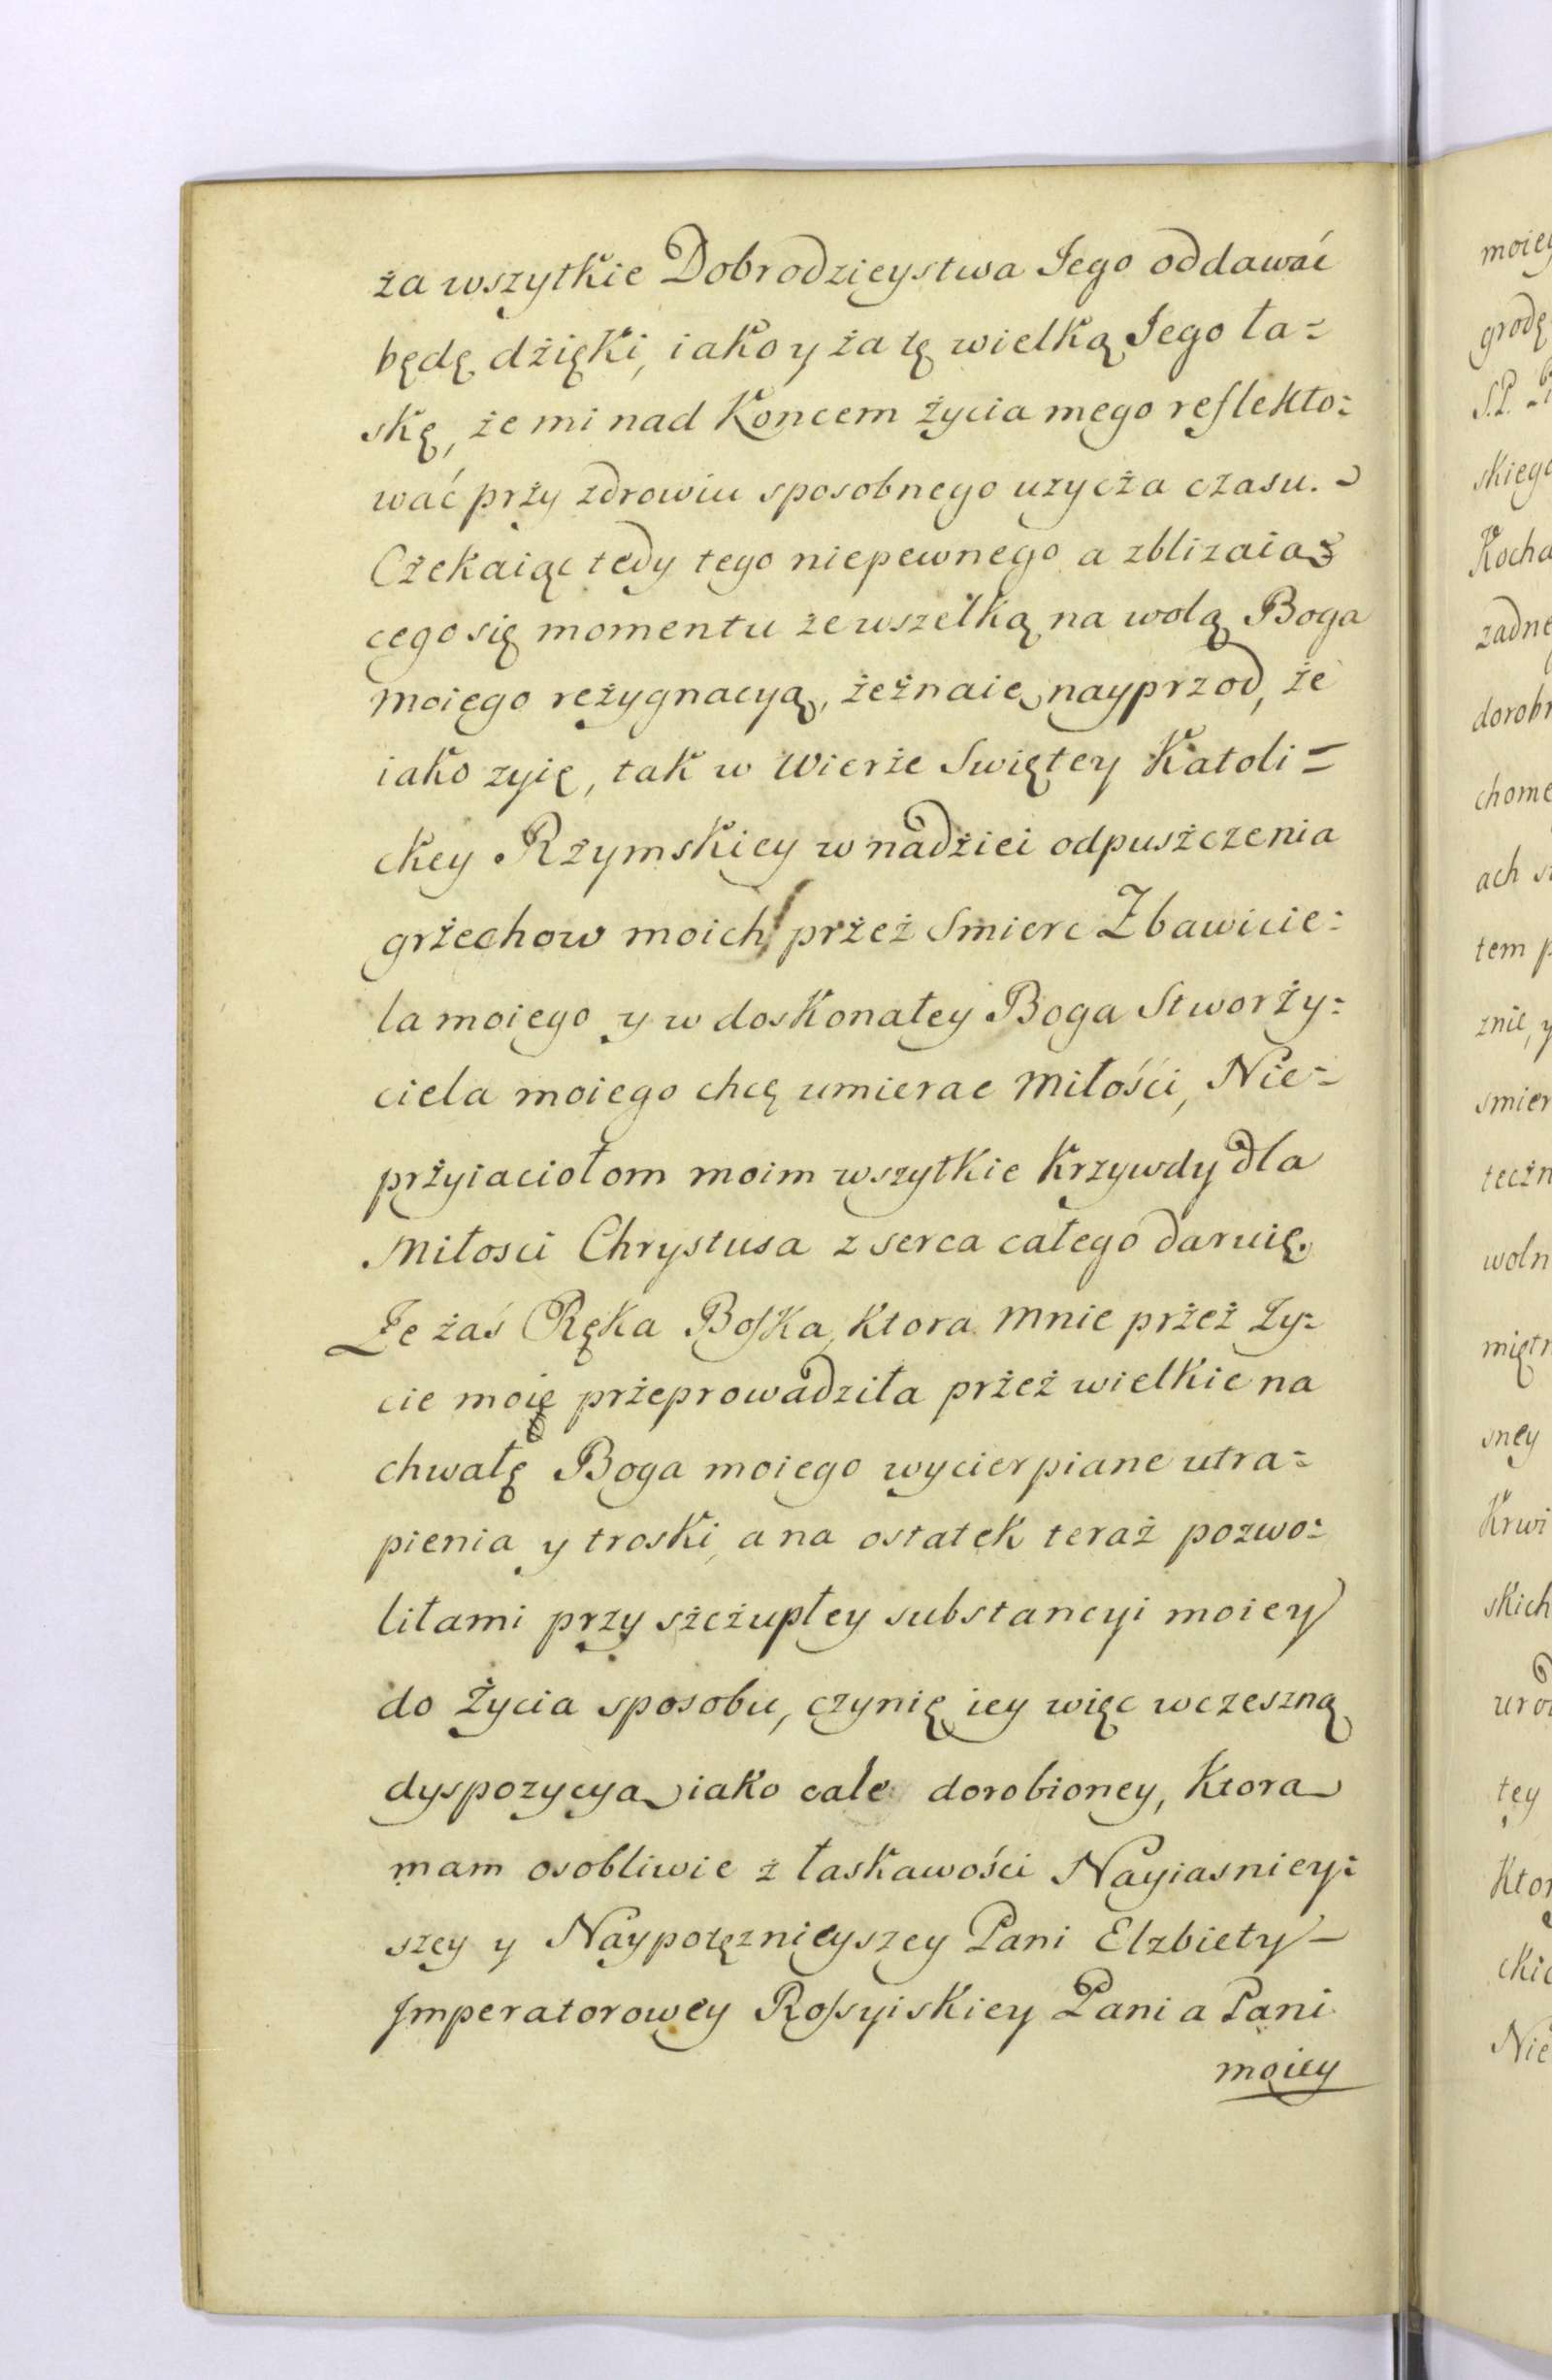 ża wszytkie Dobrodzieystwa Jego oddawać
będę dżięki, iako y ża tę wielką Jego ła=
skę, że mi nad Koncem życia mego reflekto=
wać prży zdrowiu sposobnego uzycża czasu.
Cżekaiąc tedy tego niepewnego a zblizaią=
cego się momentu że wszelką na wolą Boga
moiego reżygnacyą, żeżnaię nayprzod, że
iako zyię, tak w Wierże Swiętey Katoli=
ckey Rżymskiey w nadżiei odpusżczenia
grżechow moich prżeż Smierc Zbawicie=
la moiego y w doskonałey Boga Stworży=
ciela moiego chcę umierac Miłości, Nie=
prżyiaciołom moim wszytkie Krzywdy dla
Miłosci Chrystusa z serca całego daruię.
Że żaś Ręka Boska, Ktora mnie prżeż Ży=
cie moię prżeprowadziła prżeż wielkie na
chwałę Boga moiego wycierpiane utra=
pienia y troski, a na ostatek teraż pozwo=
liłami przy sżcżupłey substancyi moiey
do Życia sposobu, czynię iey więc wczeszną
dyspozycyą iako cale dorobioney, Ktorą
mam osobliwie ż łaskawości Nayiasniey=
szey y Naypotęznieyszey Pani Elzbiety
Imperatorowey Rossyiskiey Pani a Pani
moiey
moiey
grodę
S.P.
skiego
Kocha
zadne
dorobi
chome
ach
tem p
znie, y
smier
teczn
woln
miętn
sney
Krwi
skich
uro
tey
Ktor
ckie
Nie